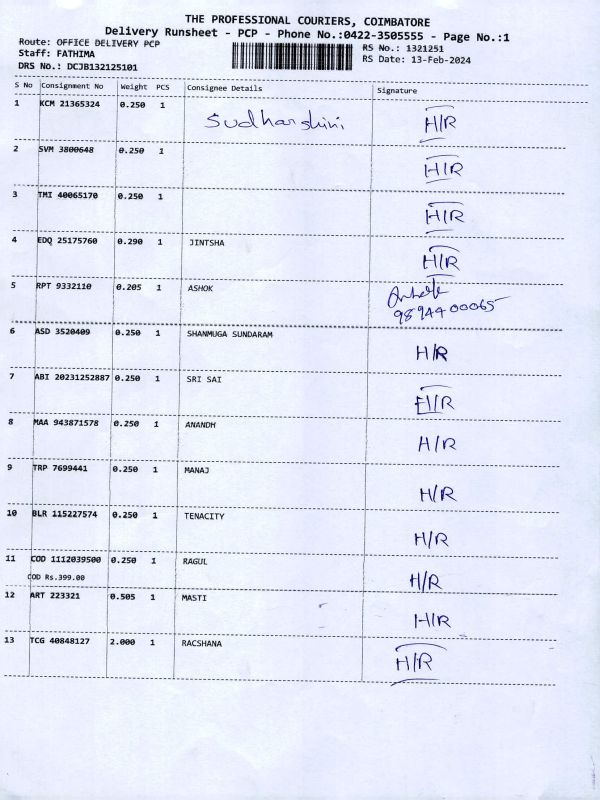 THE PROFESSIONAL COURIERS, COIMBATORE
Delivery Runsheet - PCP - Phone No.:0422-3505555 - Page No.:1
Route: OFFICE DELIVERY PCP
RS No.: 1321251
Staff: FATHIMA
RS Date: 13-Feb-2024
DRS No.: DCJB132125101
S No Consignment No Weight PCS Consignee Details Signature
1 KCM 21365324 0.250 1 Sudharshini H/R
2 SVM 3800648 0.250 1 H/R
3 TMI 40065170 0.250 1 H/R
4 EDQ 25175760 0.290 1 JINTSHA H/R
5 RPT 9332110 0.205 1 ASHOK
9894400065
6 ASD 3520409 0.250 1 SHANMUGA SUNDARAM H/R
7 ABI 20231252887 0.250 1 SRI SAI H/R
8 MAA 943871578 0.250 1 ANANDH H/R
9 TRP 7699441 0.250 1 MANAJ H/R
10 BLR 115227574 0.250 1 TENACITY H/R
11 COD 1112039500 0.250 1 RAGUL H/R
COD Rs.399.00
12 ART 223321 0.505 1 MASTI H/R
13 TCG 40848127 2.000 1 RACSHANA H/R